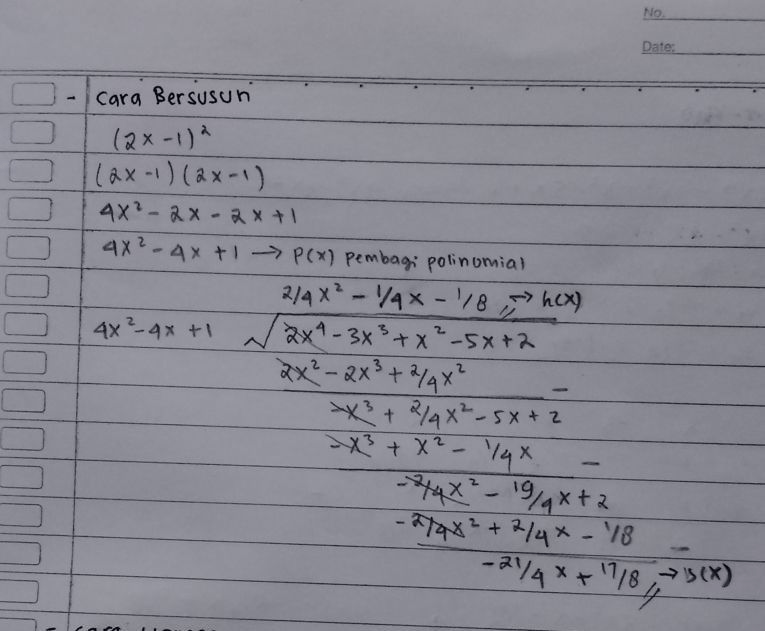 No.
Date:
- Cara Bersusun
(2x - 1)²
(2x - 1) (2x - 1)
4x² - 2x - 2x + 1
4x² - 4x + 1 → P(x) pembagi polinomial
2/4 x² - 1/4 x - 1/8 → h(x)
4x² - 4x + 1 √ 2x⁴ - 3x³ + x² - 5x + 2
2x² - 2x³ + 2/4 x² -
-x³ + 2/4 x² - 5x + 2
-x³ + x² - 1/4 x -
-2/4 x² - 19/4 x + 2
-2/4 x² + 2/4 x - 1/8 -
-21/4 x + 17/8 → s(x)